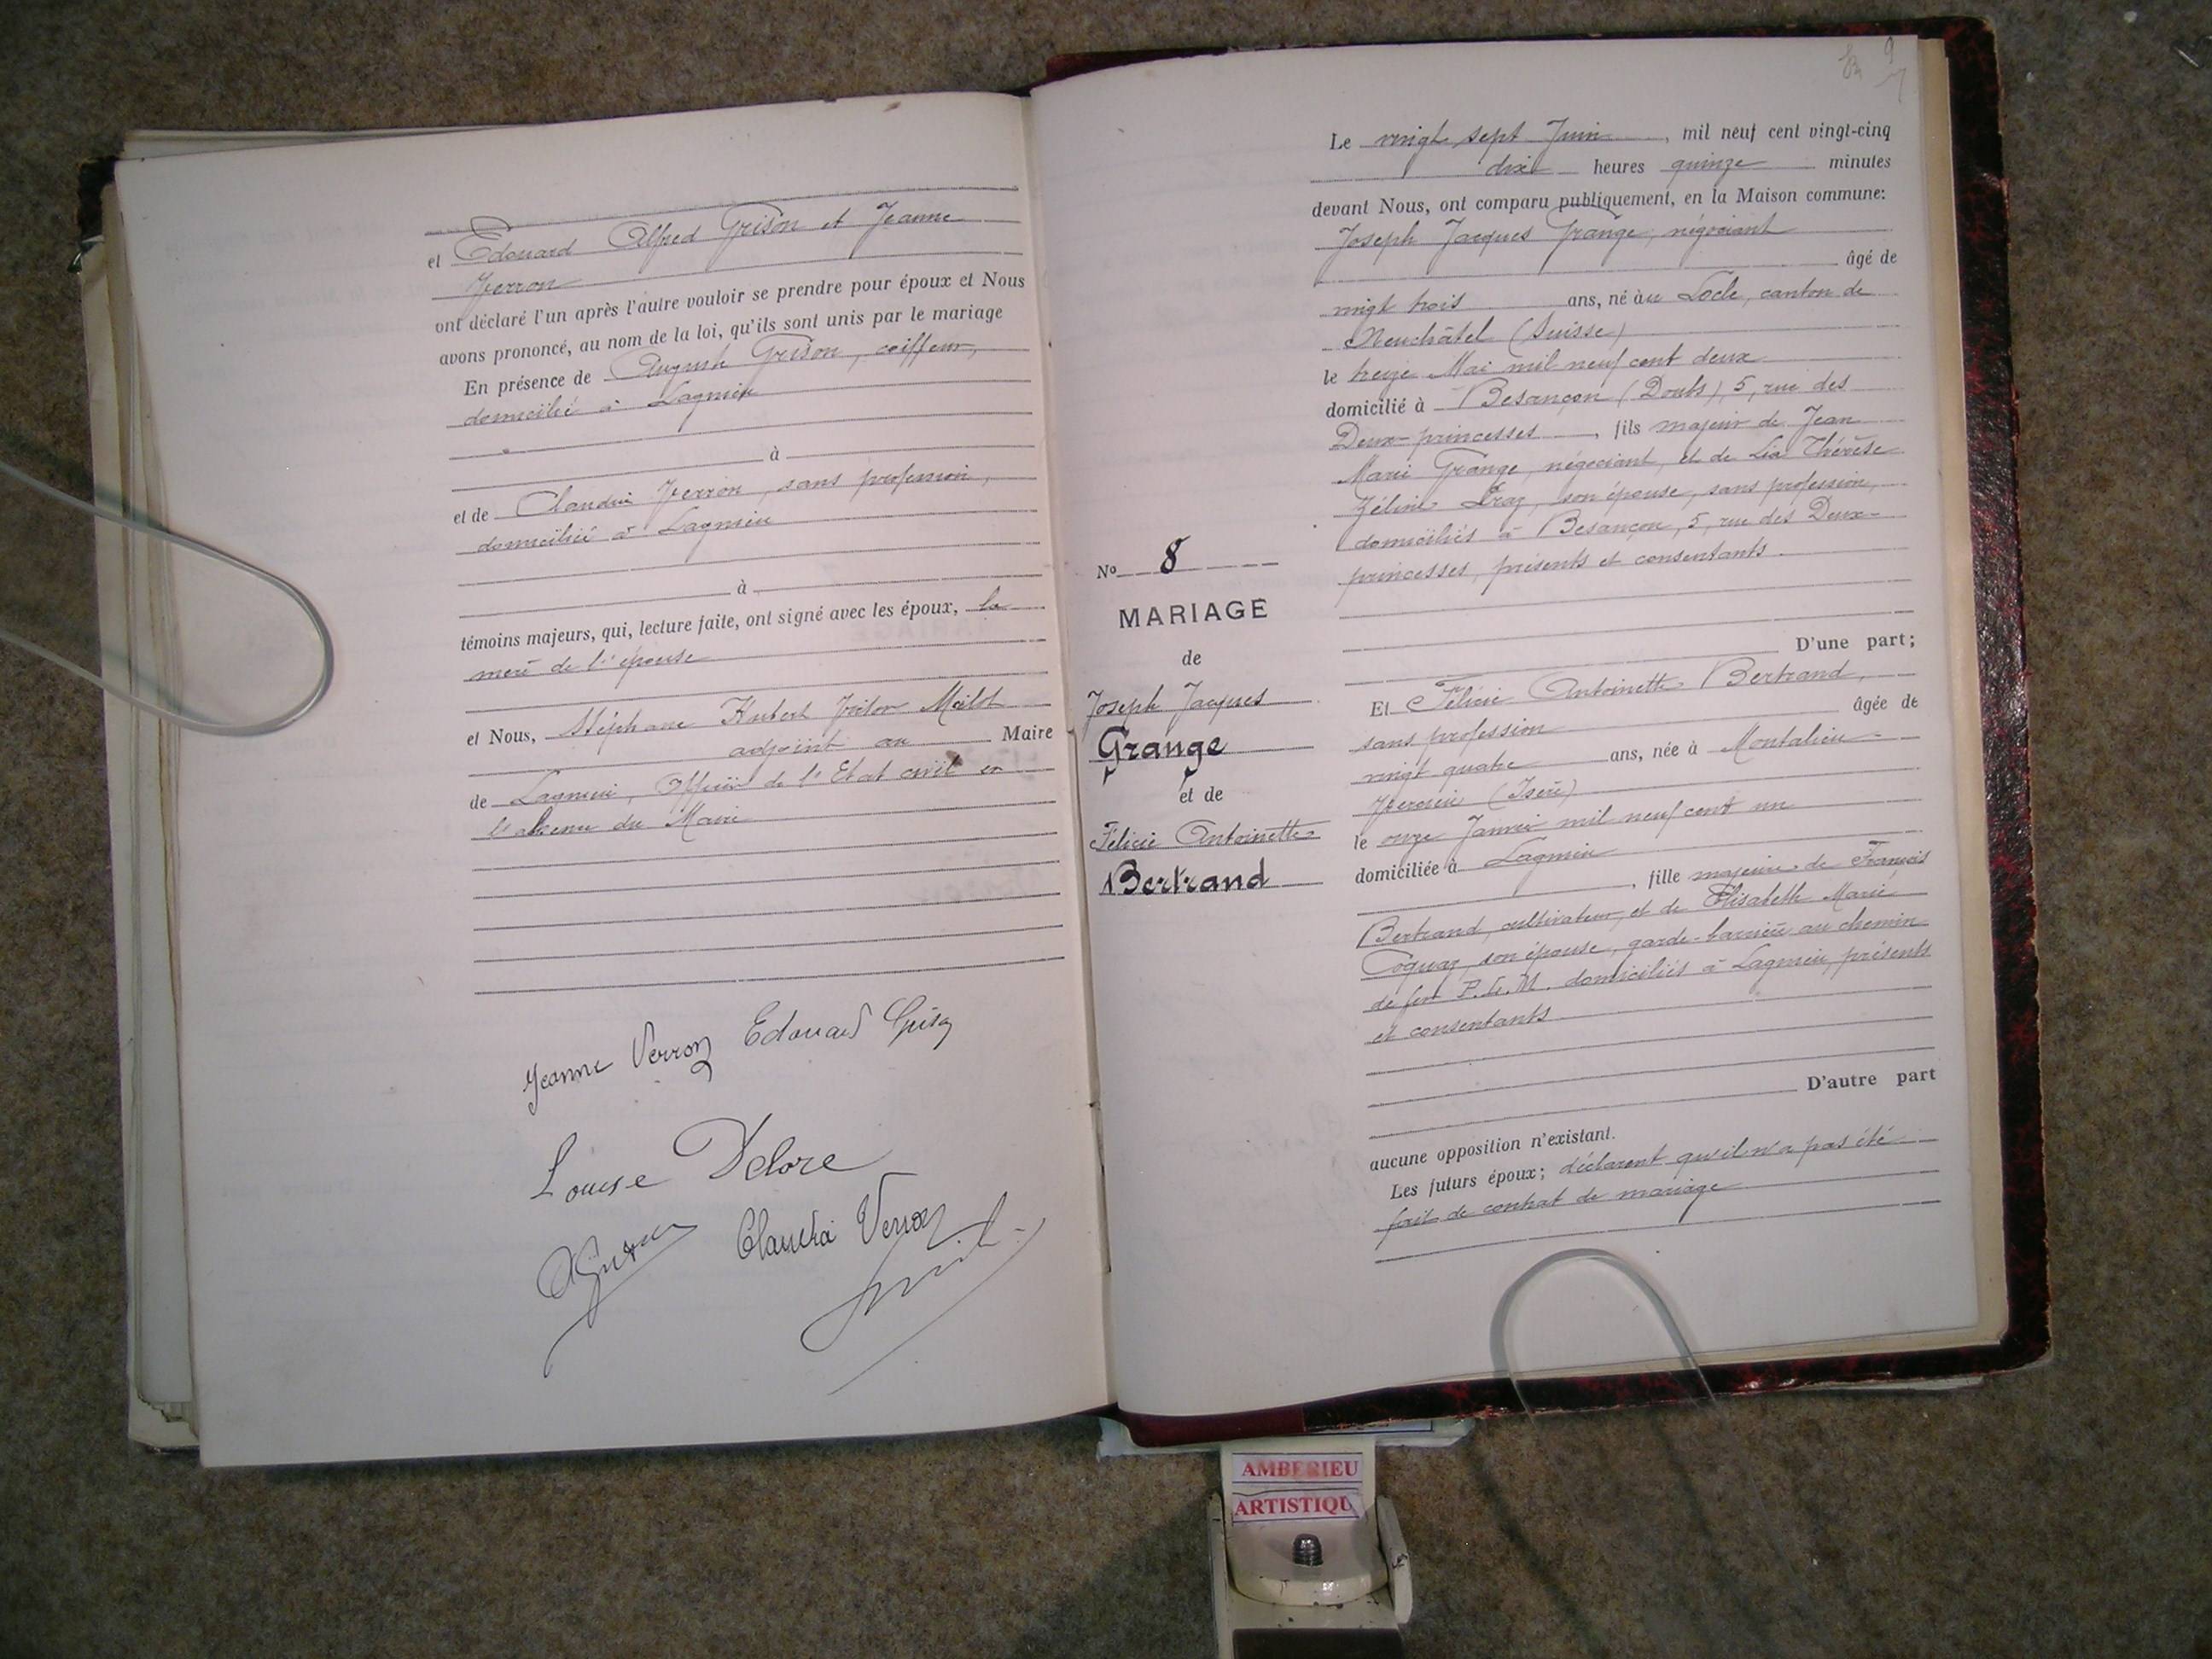 et Edouard Alfred Grison et Jeanne
Verron
ont déclaré l'un après l'autre vouloir se prendre pour époux et Nous
avons prononcé, au nom de la loi, qu'ils sont unis par le mariage
En présence de Auguste Grison, coiffeur,
domicilié à Lagnieu
à
et de Claudia Verron, sans profession,
domicilié à Lagnieu
à
témoins majeurs, qui, lecture faite, ont signé avec les époux, la
mère de l'épouse
et Nous, Stéphane Milot
adjoint au Maire
de Lagnieu, Officier de l'Etat civil en
l'absence du Maire
Jeanne Verron Edouard Grison
Louise Delore
Claudia Verron
9
Le vingt sept Juin, mil neuf cent vingt-cinq
dix heures quinze minutes
devant Nous, ont comparu publiquement, en la Maison commune:
Joseph Jacques Grange, négociant
âgé de
vingt trois ans, né au Locle, canton de
Neuchâtel (Suisse)
le treize Mai mil neuf cent deux
domicilié à Besançon (Doubs), 5, rue des
Deux-princesses, fils majeur de Jean
Marie Grange, négociant, et de Lia Thérèse
Zéline son épouse, sans profession,
domiciliés à Besançon, 5, rue des Deux-
princesses, présents et consentants
D'une part;
No 8
MARIAGE
de
Joseph Jacques
Grange
et de
Félicie Antoinette
Bertrand
Et Félicie Antoinette Bertrand,
sans profession âgée de
vingt quatre ans, née à Montalieu
Vercieu (Isère)
le onze Janvier mil neuf cent un
domiciliée à Lagnieu
, fille majeure de François
Bertrand, cultivateur, et de Elisabeth Marie
Coquaz, son épouse, garde-barrière au chemin
de fer P.L.M. domiciliés à Lagnieu, présents
et consentants
D'autre part
aucune opposition n'existant.
Les futurs époux; déclarent qu'il n'a pas été
fait de contrat de mariage
AMBERIEU
ARTISTIQU